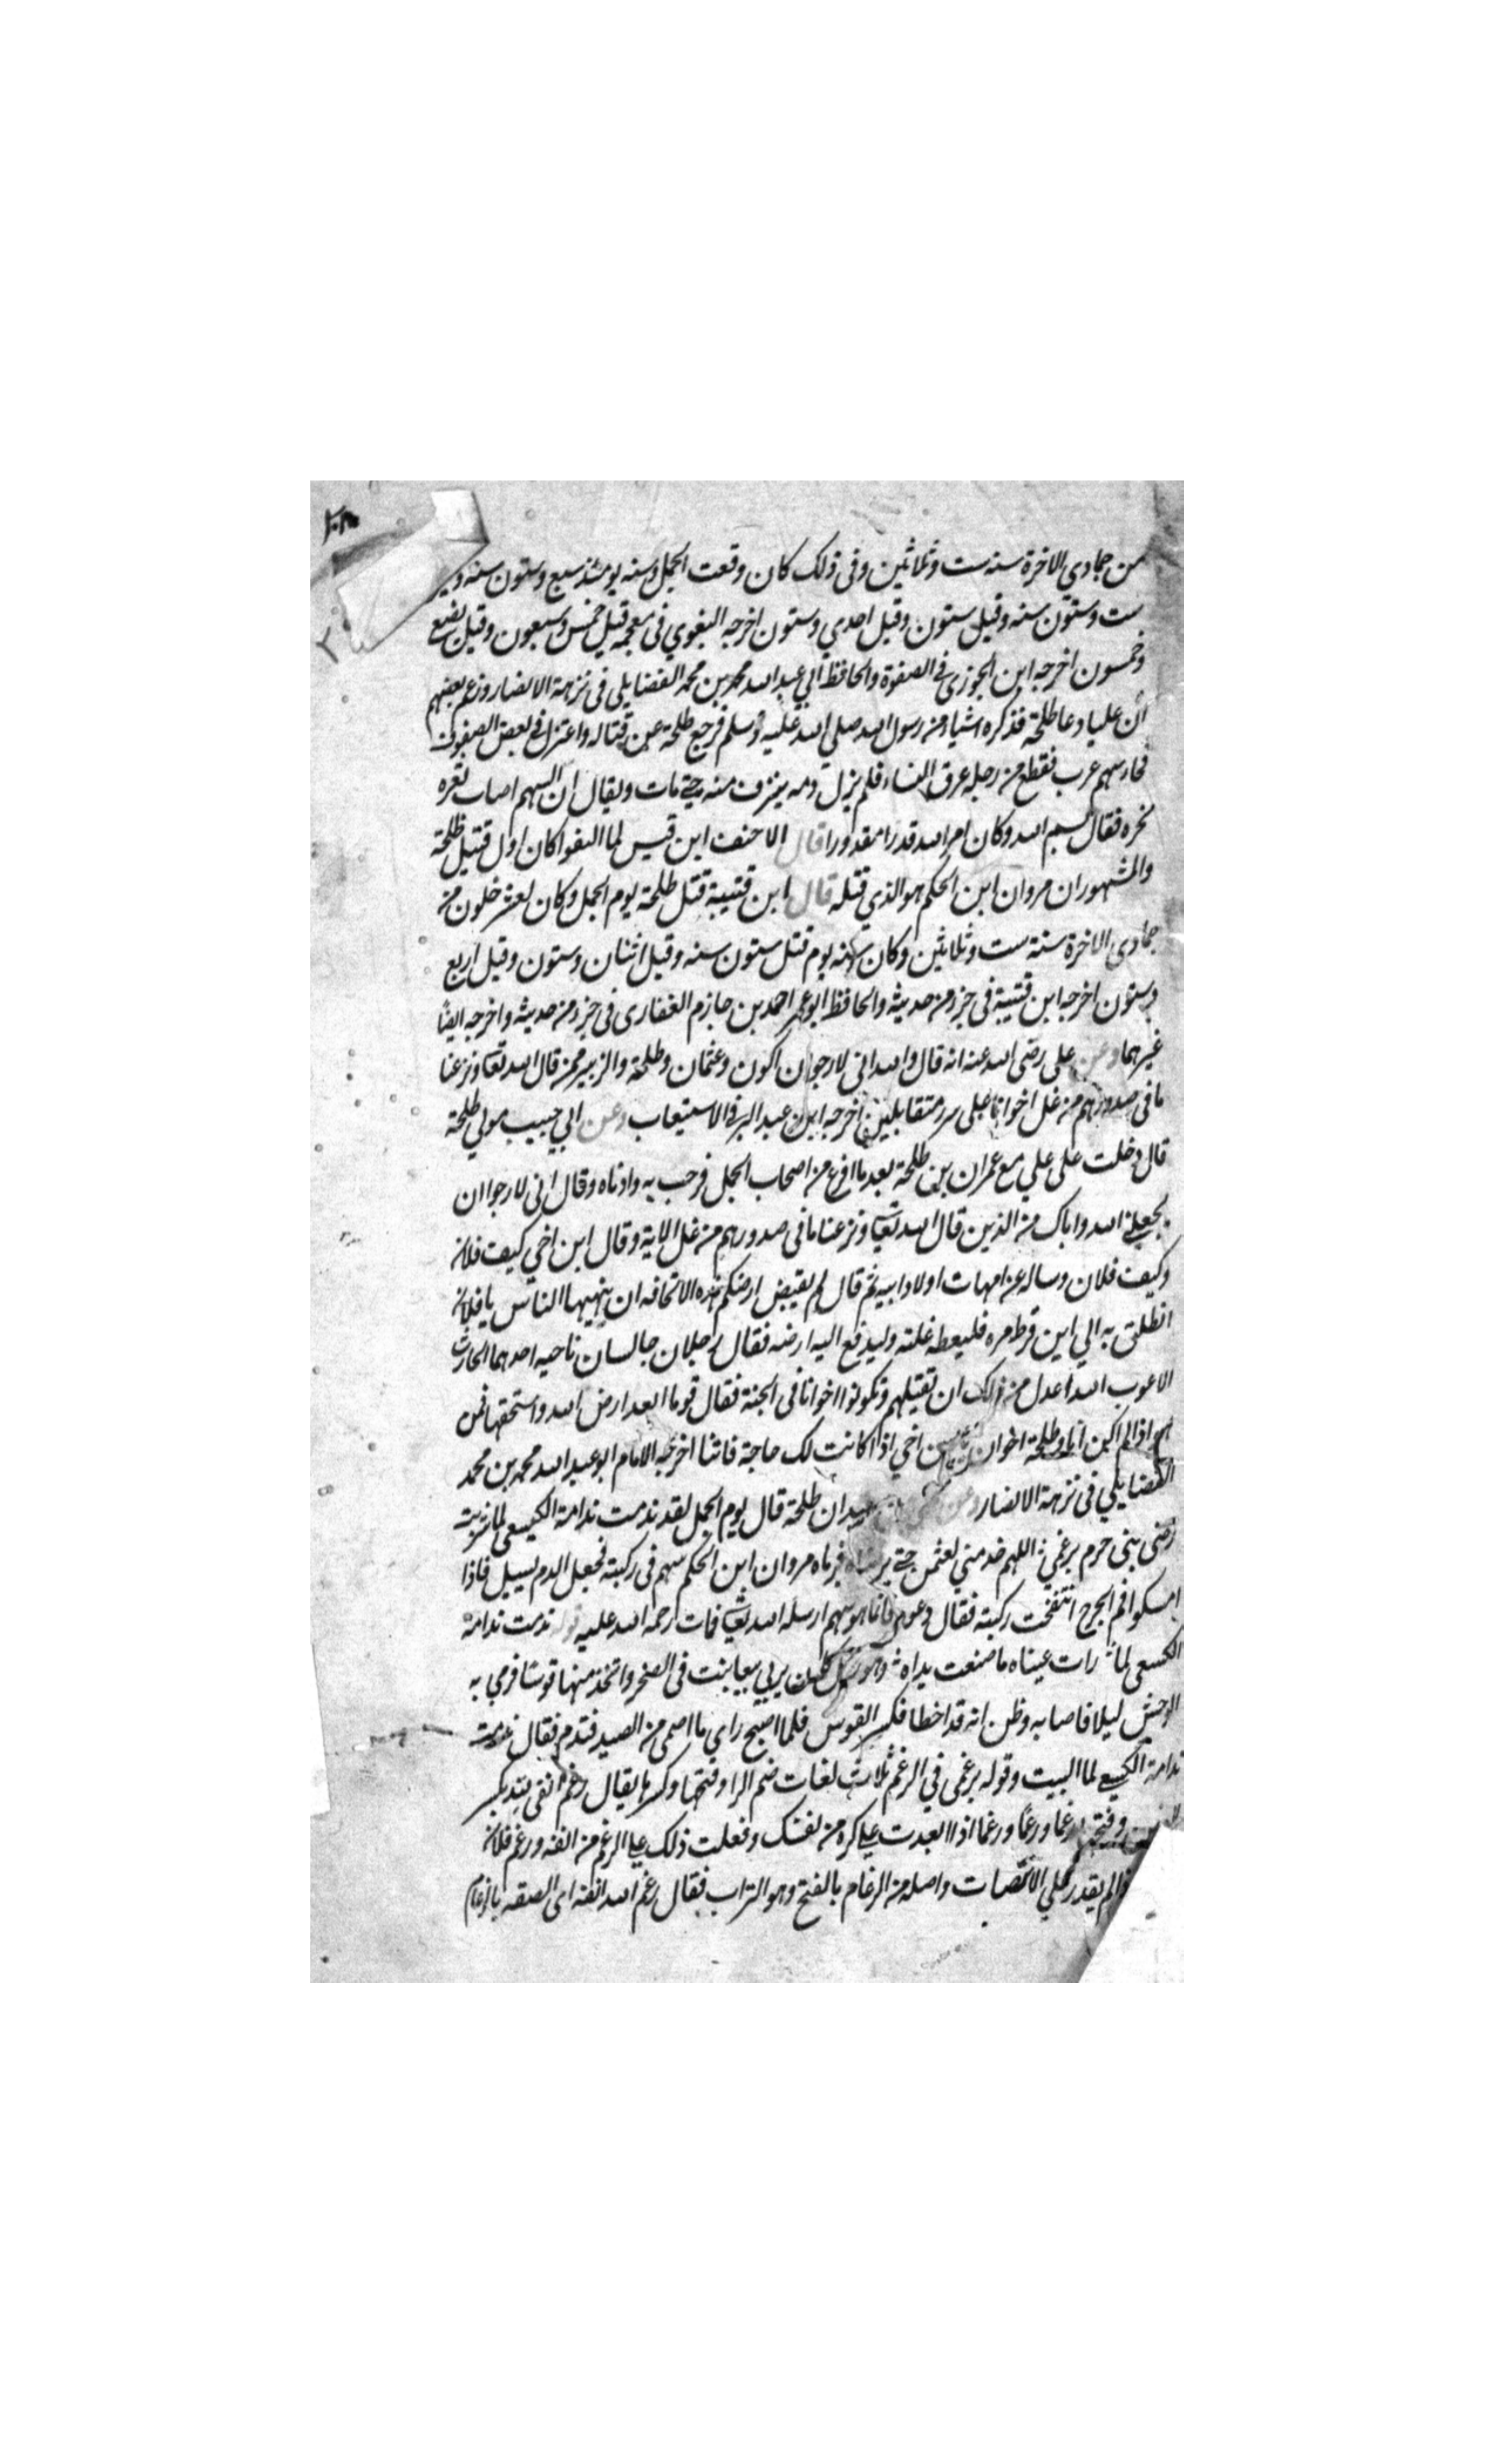 من جمادي الاخرة سنه ست وثلاثين وفى ذلك كان وقعت الجمل وسنه يومئذ سبع وستون سنه
ست وستون سنه وقيل ستون وقيل احدي وستون اخرجه البغوي فى معجمه قيل خمس وسبعون وقيل بضع
وخمسون اخرجه ابن الجوزى فى الصفوة والحافظ ابي عبد الله محمد بن محمد الفضايلى فى نزهة الابصار وزعم بعضهم
ان عليا دعا طلحة فذكره اشياء من رسول الله صلى الله عليه وسلم فرجع طلحة عن قتاله واعتزل فى بعض الصفوف
فجاء سهم غرب فقطع من رجله عرق النساء فلم يزل دمه ينزف منه حتى مات ويقال ان السهم اصاب ثغره
نحره فقال بسم الله وكان امر الله قدرا مقدورا قال الاحنف ابن قيس لما التقوا كان اول قتيل طلحة
والمشهور ان مروان ابن الحكم هو الذي قتله قال ابن قتيبة قتل طلحة يوم الجمل وكان لعشر خلون من
جمادى الاخرة سنة ست وثلاثين وكان سنه يوم قتل ستون سنه وقيل اثنان وستون وقيل اربع
وستون اخرجه ابن قتيبة فى جزء من حديثه والحافظ ابو عمر احمد بن حازم الغفارى فى جزء من حديثه واخرجه ايضا
غيرهما وعن على رضى الله عنه انه قال والله انى لارجو ان اكون وعثمان وطلحة والزبير ممن قال الله تعا ونزعنا
ما فى صدورهم من غل اخوانا على سرر متقابلين اخرجه ابن عبد البر فى الاستيعاب وعن ابي حبيب مولي طلحة
قال دخلت على علي مع عمران بن طلحة بعد ما افرغ من اصحاب الجمل فرحب به وادناه وقال انى لارجوا ان
يجعلنى الله واباك من الذين قال الله تعا ونزعنا ما فى صدورهم من غل الاية وقال ابن اخي كيف فلان
وكيف فلان وساله عن امهات اولاد ابيه ثم قال لم يقبض ارضكم هذه الا مخافه ان ينهبها الناس يا فلان
انطلق به الي ابن قرط مره فليعطه غلته وليدفع اليه ارضه فقال رجلان جالسان ناحيه احدهما الحارث
الاعوب الله اعدل من ذلك ان تقتلهم وتكونوا اخوانا فى الجنة فقال قوما ابعد ارض الله واسحقها فمن
هو اذا لم اكن انا وطلحة اخوان ابن اخي اذا كانت لك حاجة فاتنا اخرجه الامام ابو عبد الله محمد بن محمد
الفضايلي فى نزهة الابصار وعن ان طلحة قال يوم الجمل لقد ندمت ندامة الكسعى لما شريت
رضى بنى جرم برغمي اللهم خذ منى لعثمن حتى فرماه مروان ابن الحكم سهم فى ركبته فجعل الدم يسيل فاذا
امسكوا فم الجرح انتفخت ركبته فقال دعوه فانما هو سهم ارسله الله تعا فمات رحمه الله عليه قوله ندمت ندامة
الكسعى لما رات عيناه ما صنعت يداه وهو رجل كان يربى نبعا ينبت فى الصخر واتخذ منها قوسا فرمي به
الوحش ليلا فاصابه وظن انه قد اخطا فكسر القوس فلما اصبح راى ما اصمى من الصيد فتدم فقال ندمت
ندامة الكسعى لما البيت وقوله برغمى في الرغم ثلاث لغات ضم الرا وفتحها وكسرها يقال رغم انفى بكسر
وفتح رغما ورغما ورغما اذا البعدت علي كره من نفسك وفعلت ذلك على الرغم من انفه ورغم فلان
اذا لم يقدر علي الانتصاب واصله من الرغام بالفتح وهو التراب فقال رغم الله انفه اى الصقه بالرغام